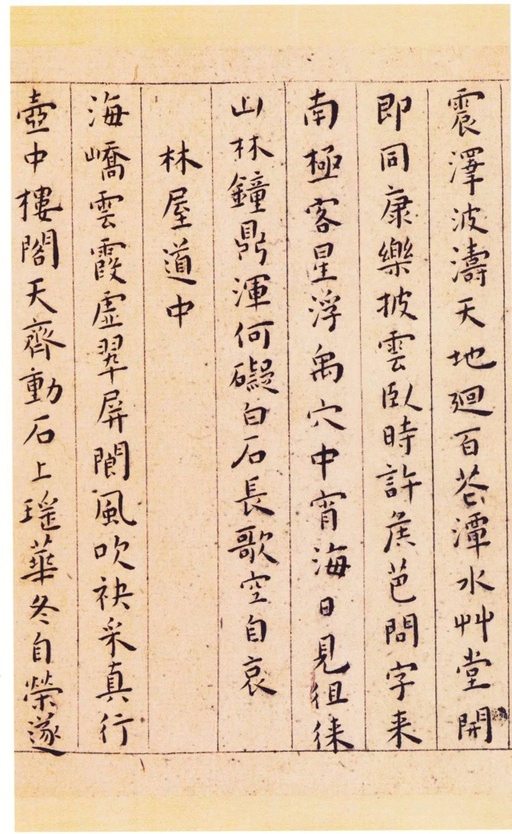 震澤波濤天地廻百花潭水艸堂開
即同康樂披雲臥時許矦芭問字来
南極客星浮禹穴中宵海日見徂徕
山林鐘鼎渾何礙白石長歌空自哀
林屋道中
海嶠雲霞虛翠屏閬風吹袂采真行
壺中樓閣天齊動石上瑤華冬自榮遂